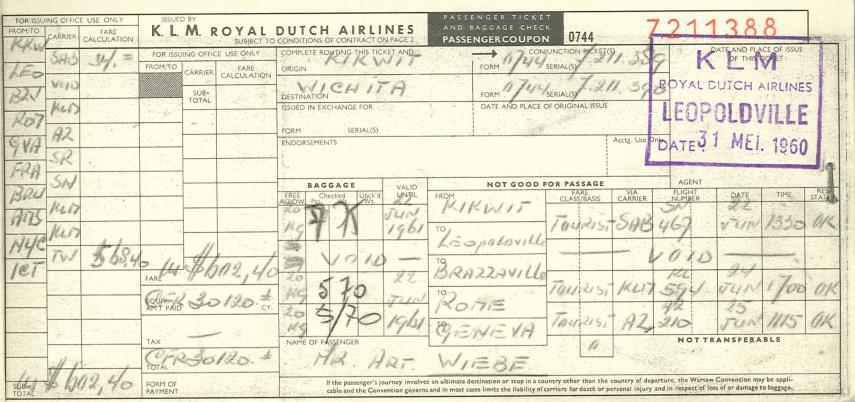 FOR ISSUING OFFICE USE ONLY
FROM/TO CARRIER FARE CALCULATION
KKW SAB 34,=
LEO VOID
BZV KLM
ROM AZ
GVA SR
FRA SN
BRU KLM
AMS KLM
NYC TW 568,40
ICT
SUB-TOTAL $602,40
ISSUED BY
K.L.M. ROYAL DUTCH AIRLINES
SUBJECT TO CONDITIONS OF CONTRACT ON PAGE 2
PASSENGER TICKET
AND BAGGAGE CHECK
PASSENGER COUPON
0744
7211388
FOR ISSUING OFFICE USE ONLY
FROM/TO CARRIER FARE CALCULATION
SUB-TOTAL
FARE $602,40
EQUIV. AM'T PAID CFR 30120.= CY.
TAX —
TOTAL CFR 30120.=
FORM OF PAYMENT
COMPLETE ROUTING THIS TICKET AND
CONJUNCTION TICKET(S)
ORIGIN KIKWIT
FORM 0744 SERIAL(S) 7.211.389
DESTINATION WICHITA
FORM 0744 SERIAL(S) 7.211.390
DATE AND PLACE OF ISSUE OF THIS TICKET
KLM
ROYAL DUTCH AIRLINES
LEOPOLDVILLE
DATE: 31 MEI. 1960
ISSUED IN EXCHANGE FOR
DATE AND PLACE OF ORIGINAL ISSUE
FORM SERIAL(S)
ENDORSEMENTS
Acctg. Use Only
AGENT
BAGGAGE
FREE ALLOW Checked Pcs. Wt. Unck'd Wt.
VALID UNTIL
NOT GOOD FOR PASSAGE
FARE CLASS/BASIS VIA CARRIER FLIGHT NUMBER DATE TIME RES. STATUS
20 KG 22 JUN 1961 FROM KIKWIT TOURIST SAB SN 467 22 JUN 1330 OK
— VOID — TO LEOPOLDVILLE — VOID —
20 KG 5 70 22 JUN TO BRAZZAVILLE TOURIST KLM KL 594 24 JUN 1700 OK
20 KG 5/70 1961 TO ROME TOURIST AZ AZ 210 25 JUN 1115 OK
TO GENEVA
NOT TRANSFERABLE
NAME OF PASSENGER
MR ART. WIEBE
If the passenger's journey involves an ultimate destination or stop in a country other than the country of departure, the Warsaw Convention may be appli-
cable and the Convention governs and in most cases limits the liability of carriers for death or personal injury and in respect of loss of or damage to baggage.